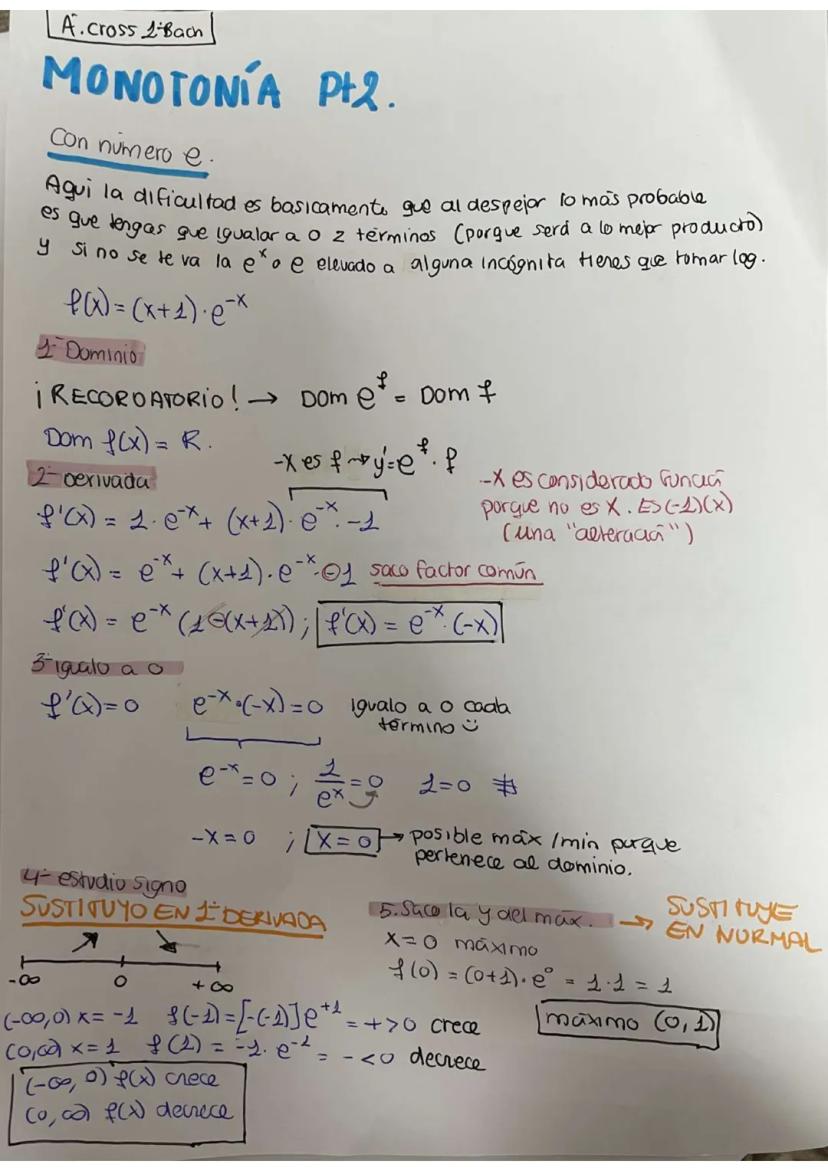 A. cross 1º Bach
MONOTONÍA Pt2.
Con número e.
Aquí la dificultad es basicamente que al despejar lo más probable
es que tengas que igualar a 0 2 términos (porque será a lo mejor producto)
y si no se te va la eˣ o e elevado a alguna incógnita tienes que tomar log.
f(x) = (x+1)·e⁻ˣ
1º Dominio
¡RECORDATORIO! → Dom e^f = Dom f
Dom f(x) = R.
-x es f → y'= e^f · f
2º derivada
-x es considerado función
porque no es x. Es (-1)(x)
(una "alteración")
f'(x) = 1·e⁻ˣ + (x+1)·e⁻ˣ·-1
f'(x) = e⁻ˣ + (x+1)·e⁻ˣ·-1 saco factor común
f'(x) = e⁻ˣ (1-(x+1)); f'(x) = e⁻ˣ·(-x)
3º igualo a 0
f'(x)=0 e⁻ˣ·(-x)=0 igualo a 0 cada
término
e⁻ˣ=0 ; 1/eˣ=0 1=0 ∄
-x=0 ; x=0 → posible máx/min porque
pertenece al dominio.
4º estudio signo
SUSTITUYO EN 1º DERIVADA
-∞ 0 +∞
(-∞,0) x=-1 f(-1)=[-(-1)]e⁺¹ = + >0 crece
(0,∞) x=1 f(1) = -1·e⁻¹ = - <0 decrece
(-∞, 0) f(x) crece
(0, ∞) f(x) decrece
5. Saco la y del máx. → SUSTITUYE
EN NORMAL
x=0 máximo
f(0) = (0+1)·e⁰ = 1·1 = 1
máximo (0,1)